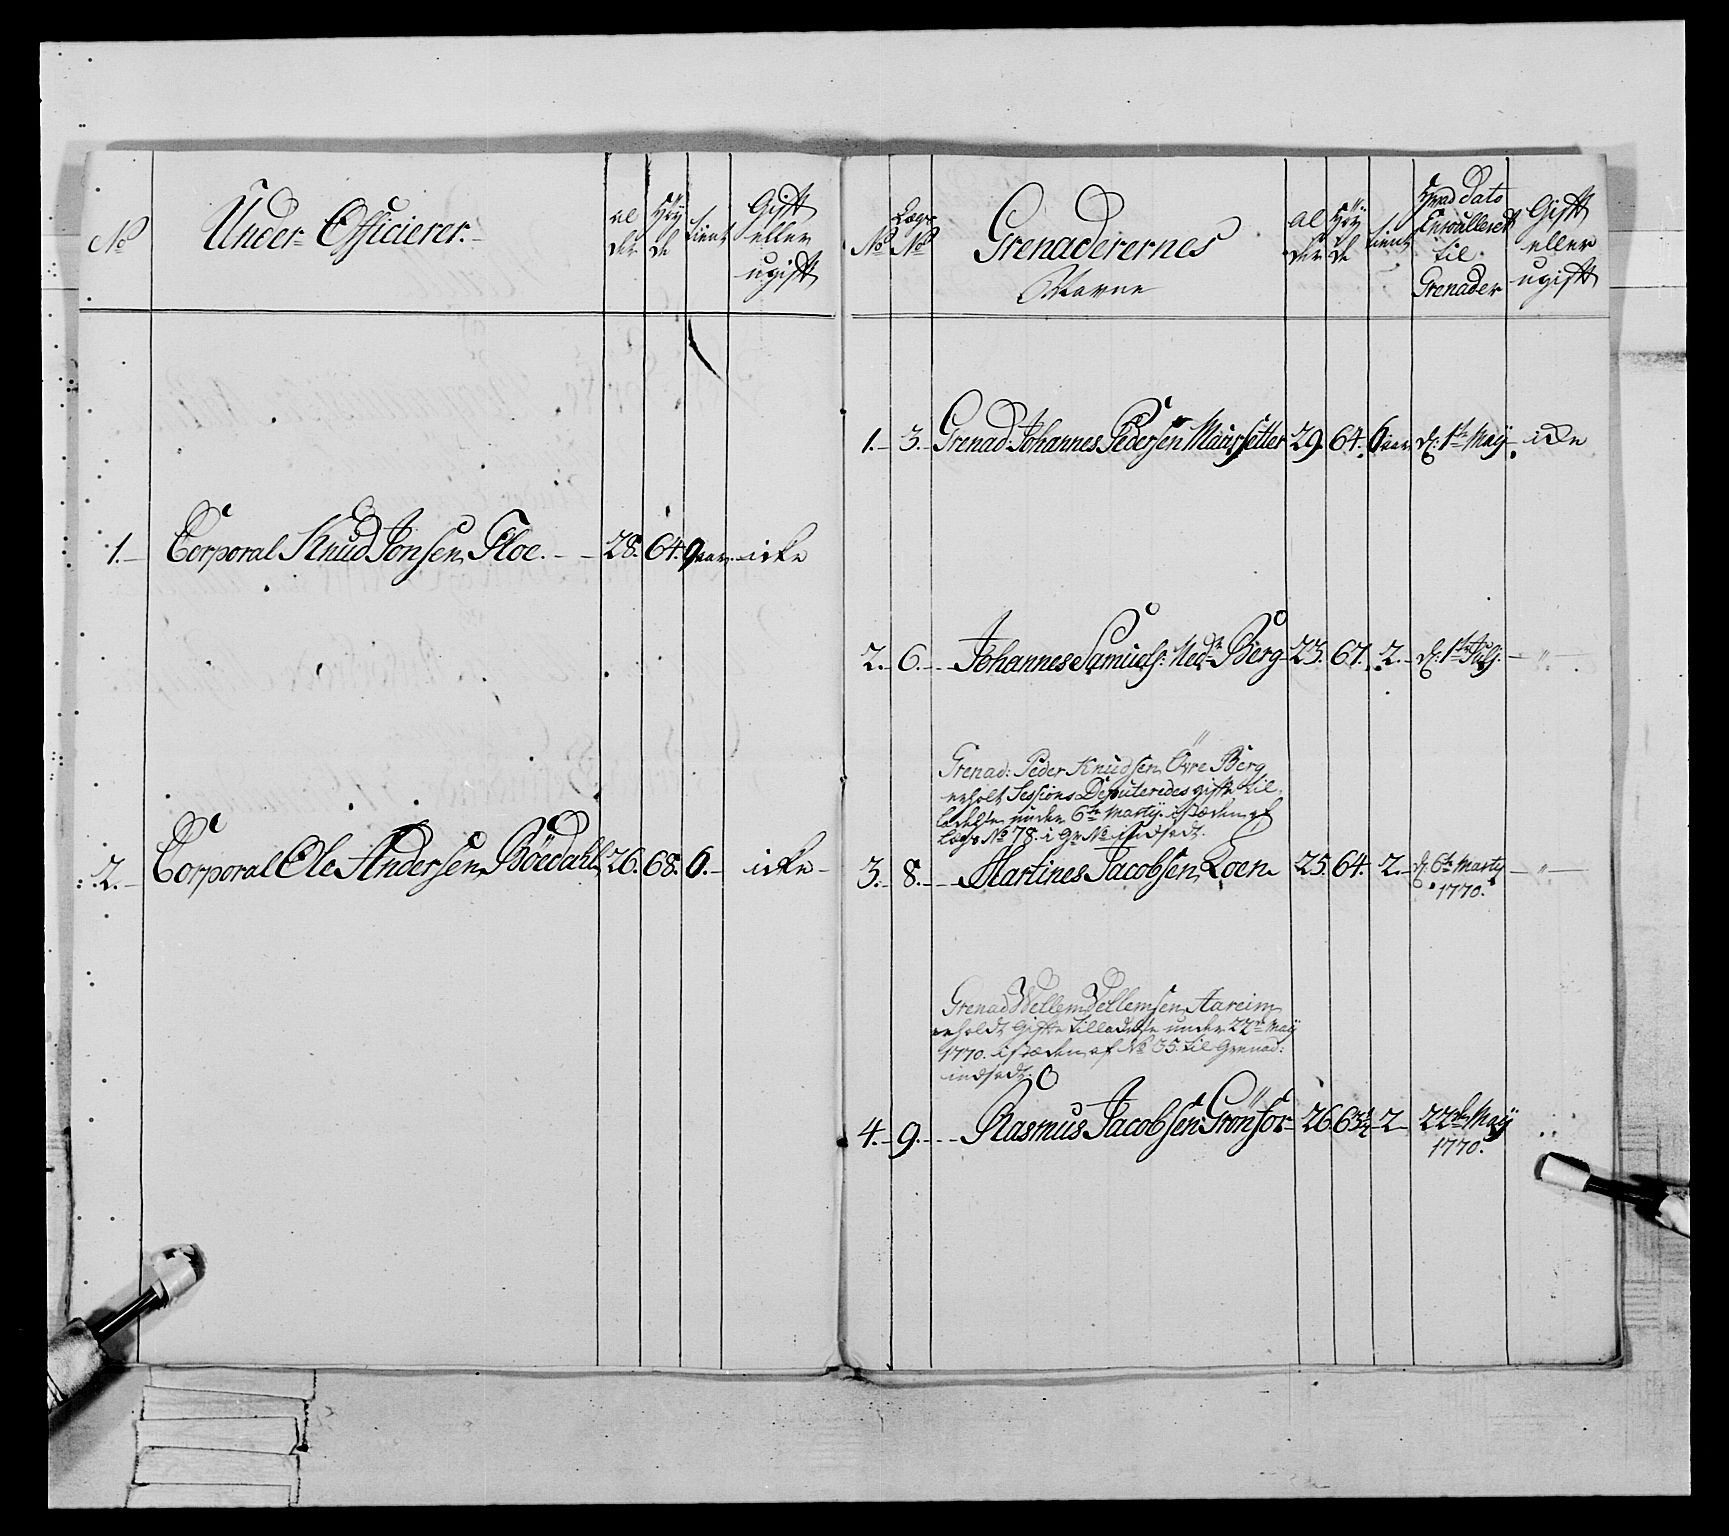 No
Under Officierer.
al
der
Höy
de
tient
Gift
eller
ugift
1. Corporal Knud Jonsen Floe. 28. 64. 9 aar. icke
2. Corporal Ole Andersen Böedahl 26. 68. 6. icke
No
Lægs
No
Grenaderernes
Navne
al
der
Höy
de
tient
Hvad dato
Enroulleret
til
Grenader
Gift
eller
ugift
1. 3. Grenad: Johannes Pedersen Maurssetter 29. 64. 6 aar d: 1te May icke
2. 6. Johannes Samuels: Nedr Berg 23. 67. 2. d: 1te Julj. "
Grenad: Peder Knudsen Övre Berg
erholt Sessions Deputeredes gifte til
ladelse under 6te Martÿ. istæden af
Lægs No 78. i Gr: No indsadt.
3. 8. Martines Jacobsen Loen 25. 64. 2. d: 6te Marty "
1770.
Grenad Wellem Wellemsen Aareim
erholdt gifte tilladelse under 22de May
1770. istæden af No 35. til Grenad:
indsadt.
4. 9. Rasmus Jacobsen Grönfor 26 63½ 2 22de Maÿ
1770.